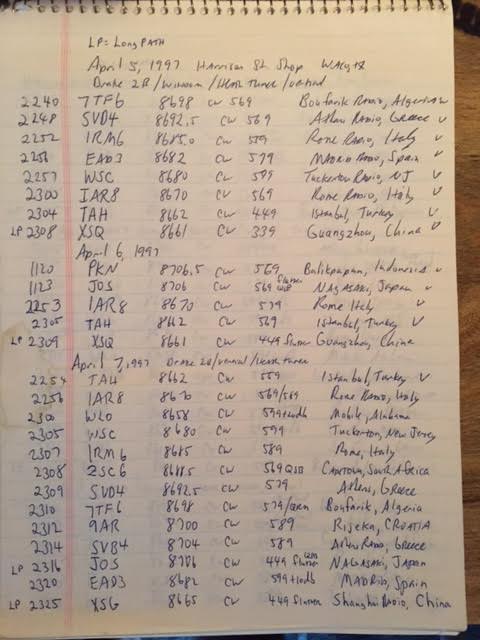 LP = Long PATH
April 5, 1997 Harrison St Shop
Drake 2B / / Heath /
2240 7TF6 8698 CW 569 Boufarik Radio, Algeria ✓
2248 SVD4 8692.5 CW 569 Athens Radio, Greece ✓
2252 IRM6 8685.0 CW 579 Rome Radio, Italy ✓
EAD3 8682 CW 579 MADRID Radio, Spain ✓
2257 WSC 8680 CW 599 Tuckerton Radio, NJ ✓
2300 IAR8 8670 CW 569 Rome Radio, Italy ✓
2304 TAH 8662 CW 449 Istanbul, Turkey ✓
LP 2308 XSQ 8661 CW 339 Guangzhou, China ✓
April 6, 1997
1120 PKN 8706.5 CW 569 Balikpapan, Indonesia ✓
1123 JOS 8706 CW 569 flutter NAGASAKI, Japan ✓
2253 IAR8 8670 CW 579 Rome Italy ✓
2305 TAH 8662 CW 569 Istanbul, Turkey ✓
LP 2309 XSQ 8661 CW 449 flutter Guangzhou, China
April 7, 1997 Drake 2B / / Heath
2254 TAH 8662 CW 559 Istanbul, Turkey ✓
2256 IAR8 8670 CW 569/589 Rome Radio, Italy
2300 WLO 8658 CW 599+10db Mobile, Alabama
2305 WSC 8680 CW 599 Tuckerton, New Jersey
2307 IRM6 8685 CW 589 Rome, Italy
2308 ZSC6 8688.5 CW 569 QSB Capetown, South Africa
2309 SVD4 8692.5 CW 579 Athens, Greece
2310 7TF6 8698 CW 579/QRM Boufarik, Algeria
2312 9AR 8700 CW 589 Rijeka, CROATIA
2314 SVB4 8704 CW 589 Athens Radio, Greece
LP 2316 JOS 8706 CW 449 flutter QRM NAGASAKI, Japan
2320 EAD3 8682 CW 599+10db MADRID, Spain
LP 2325 XSG 8665 CW 449 flutter Shanghai Radio, China